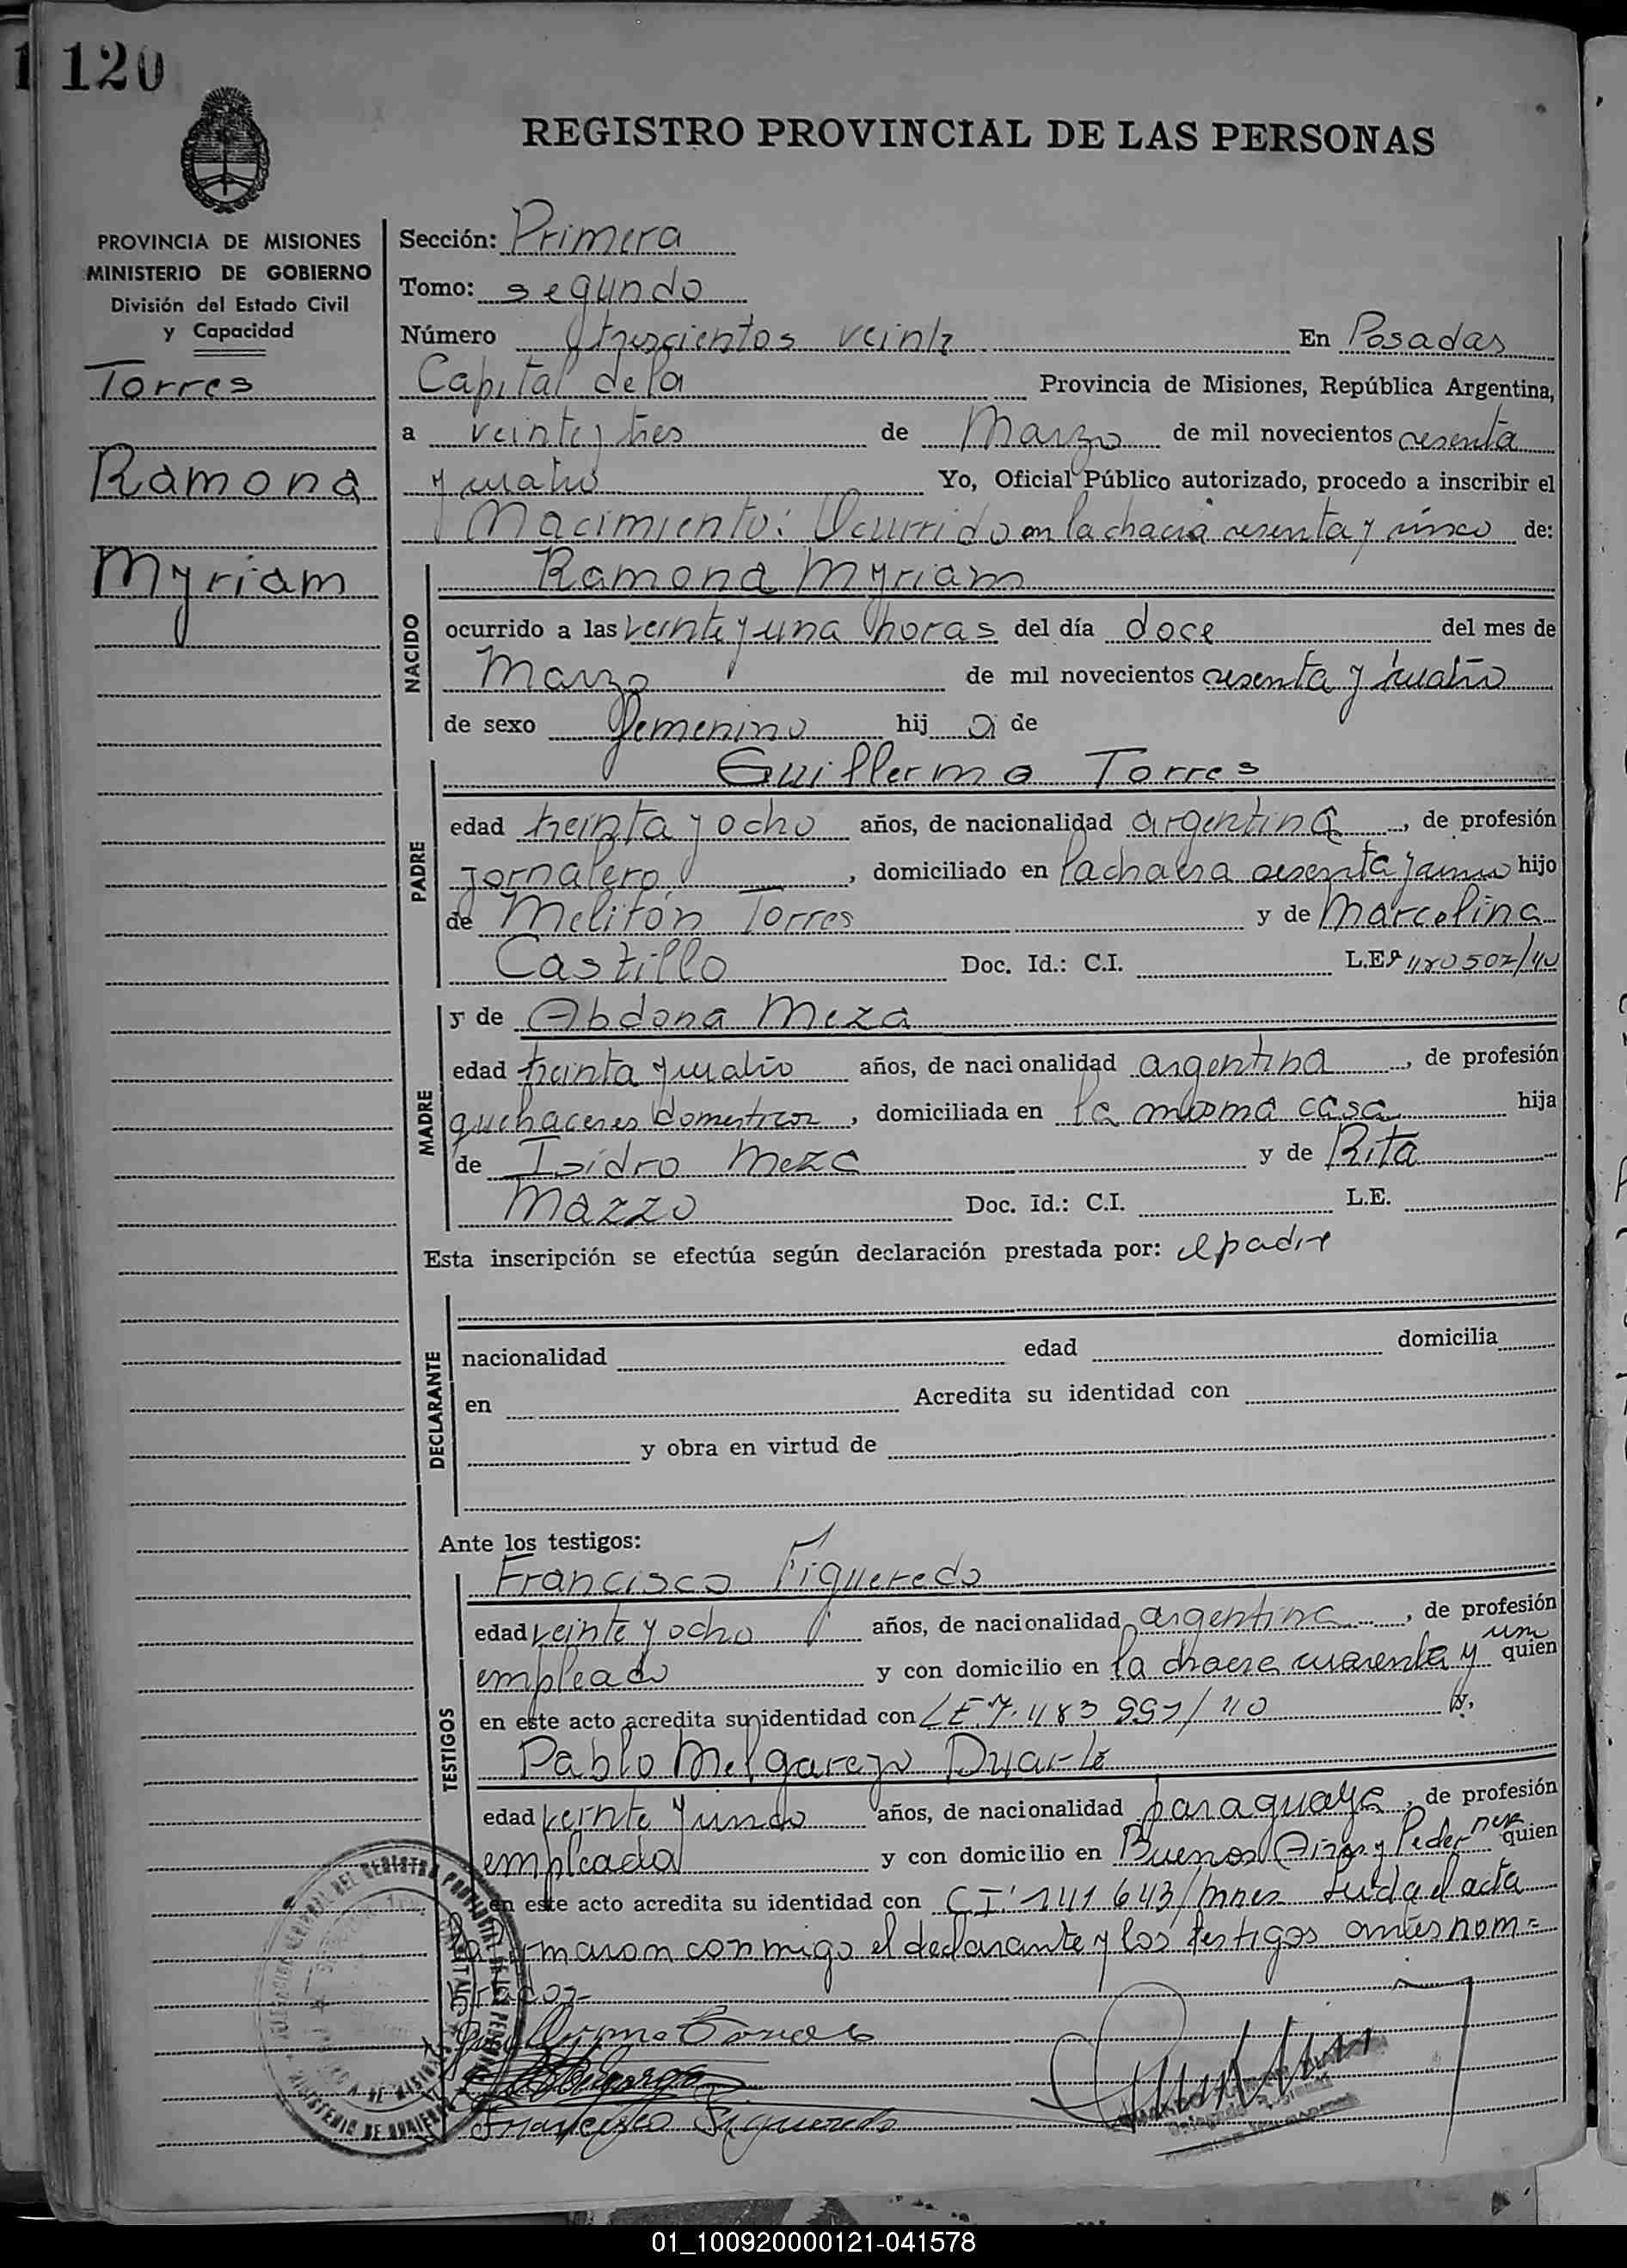 120
REGISTRO PROVINCIAL DE LAS PERSONAS
PROVINCIA DE MISIONES
MINISTERIO DE GOBIERNO
División del Estado Civil
y Capacidad
Torres
Ramona
Myriam
Sección: Primera
Tomo: segundo
Número trescientos veinte En Posadas
Capital de la Provincia de Misiones, República Argentina,
a veinte y tres de Marzo de mil novecientos sesenta
y cuatro Yo, Oficial Público autorizado, procedo a inscribir el
Nacimiento: Ocurrido en la chacra sesenta y cinco de:
NACIDO
Ramona Myriam
ocurrido a las veinte y una horas del día doce del mes de
Marzo de mil novecientos sesenta y cuatro
de sexo femenino hij a de
PADRE
Guillermo Torres
edad treinta y ocho años, de nacionalidad argentina, de profesión
jornalero, domiciliado en la chacra sesenta y cinco hijo
de Melitón Torres y de Marcelina
Castillo Doc. Id.: C.I. L.E.
MADRE
y de Abdona Meza
edad treinta y cuatro años, de nacionalidad argentina, de profesión
quehaceres domesticos, domiciliada en la misma casa hija
de Isidro Meza y de Rita
Mazzo Doc. Id.: C.I. L.E.
Esta inscripción se efectúa según declaración prestada por: el padre
DECLARANTE
nacionalidad edad domicilia
en Acredita su identidad con
y obra en virtud de
Ante los testigos:
TESTIGOS
Francisco Figueredo
edad veinte y ocho años, de nacionalidad argentina, de profesión
empleado y con domicilio en la chacra cuarenta y un quien
en este acto acredita su identidad con LE.
Pablo Melgarejo Duarte
edad veinte y cinco años, de nacionalidad paraguaya, de profesión
empleado y con domicilio en Buenos Aires y Pedernera quien
en este acto acredita su identidad con CI. 141.643/mnes Leida el acta
la firmaron conmigo el declarante y los testigos antes nom=
brados-
Guillermo Torres
Francisco Figueredo
01_100920000121-041578